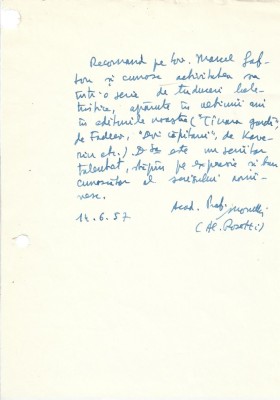 Recomand pe tov. Marcel Gaf-
ton și cunosc activitatea sa
într-o serie de traduceri bele-
tristice, apărute în ultimii ani
în editurile noastre ("Tînăra gardă",
de Fadeev, "Doi căpitani", de Kave-
rin etc.). D-sa este un scriitor
talentat, stăpîn pe expresie și bun
cunoscător al scrisului romî-
nesc.
14.6.57 Acad. Prof.
(Al. Rosetti)